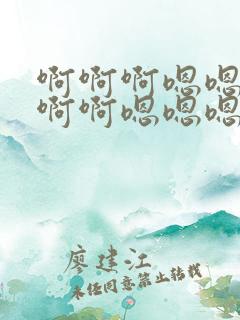 啊啊啊嗯嗯
啊啊嗯嗯嗯
廖建江
未经同意禁止转载